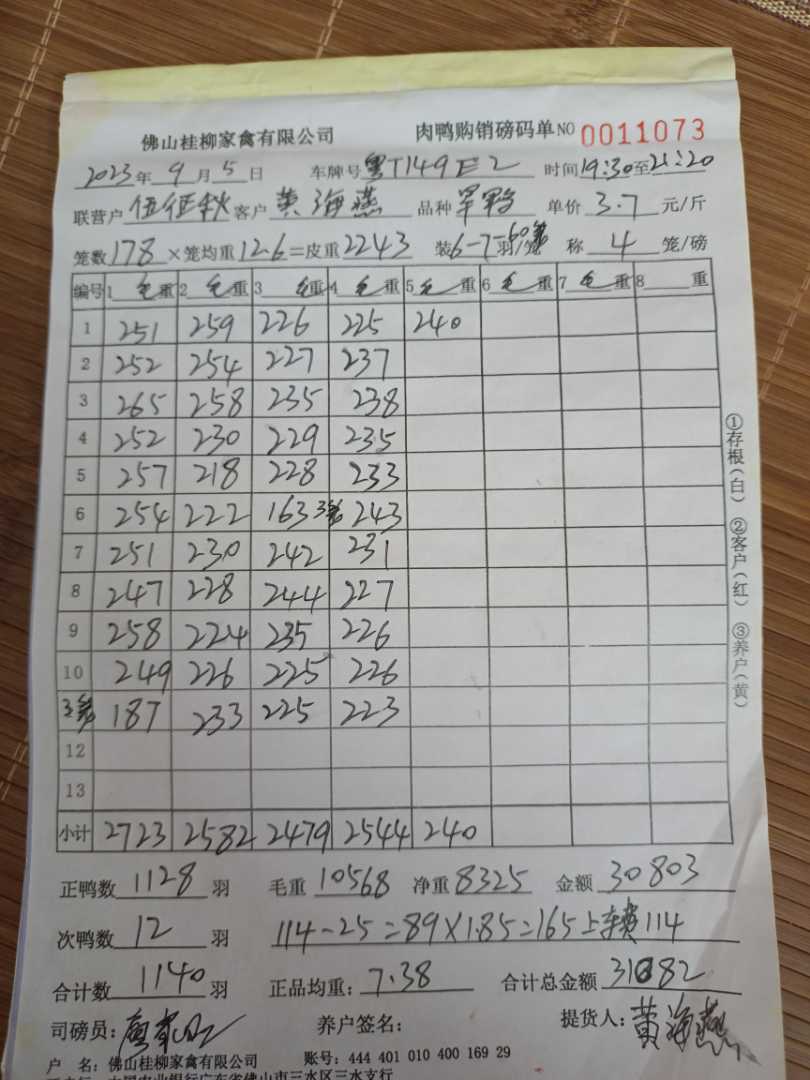 佛山桂柳家禽有限公司 肉鸭购销磅码单 NO 0011073
2023年 9月 5日 车牌号 粤T149E2 时间 19:30至21:20
联营户 伍征秋 客户 黄海燕 品种 旱鸭 单价 3.7 元/斤
笼数 178 ×笼均重 12.6 =皮重 2243 装 6-7 羽/笼 称 4 笼/磅
编号 1 毛重 2 毛重 3 毛重 4 毛重 5 毛重 6 毛重 7 毛重 8 重
1 251 259 226 225 240
2 252 254 227 237
3 265 258 235 238
4 252 230 229 235
5 257 218 228 233
6 254 222 163 3笼 243
7 251 230 242 231
8 247 228 244 227
9 258 224 235 226
10 249 226 225 226
3笼 187 233 225 223
12
13
小计 2723 2582 2479 2544 240
正鸭数 1128 羽 毛重 10568 净重 8325 金额 30803
次鸭数 12 羽 114-25=89×1.85=165 上车费114
合计数 1140 羽 正品均重: 7.38 合计总金额 31082
司磅员: 养户签名: 提货人: 黄海燕
户 名: 佛山桂柳家禽有限公司 账号: 444 401 010 400 169 29
中国农业银行广东省佛山市三水区三水支行
①存根(白) ②客户(红) ③养户(黄)